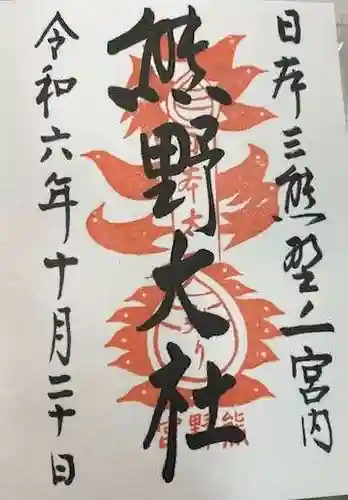 日本三熊野ノ一宮内
熊野大社
令和六年十月二十日
熊野宮